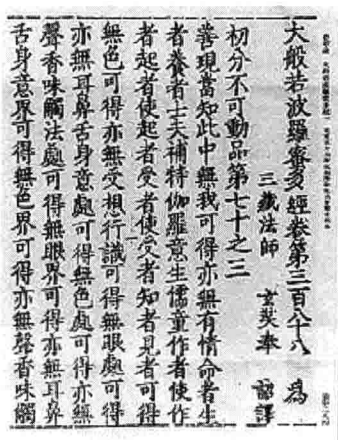 大般若波羅蜜多經卷第三百八十八 為
三藏法師 玄奘奉 詔譯
初分不可動品第七十之三
善現當知此中無我可得亦無有情命者生
者養者士夫補特伽羅意生儒童作者使作
者起者使起者受者使受者知者見者可得
無色可得亦無受想行識可得無眼處可得
亦無耳鼻舌身意處可得無色處可得亦無
聲香味觸法處可得無眼界可得亦無耳鼻
舌身意界可得無色界可得亦無聲香味觸